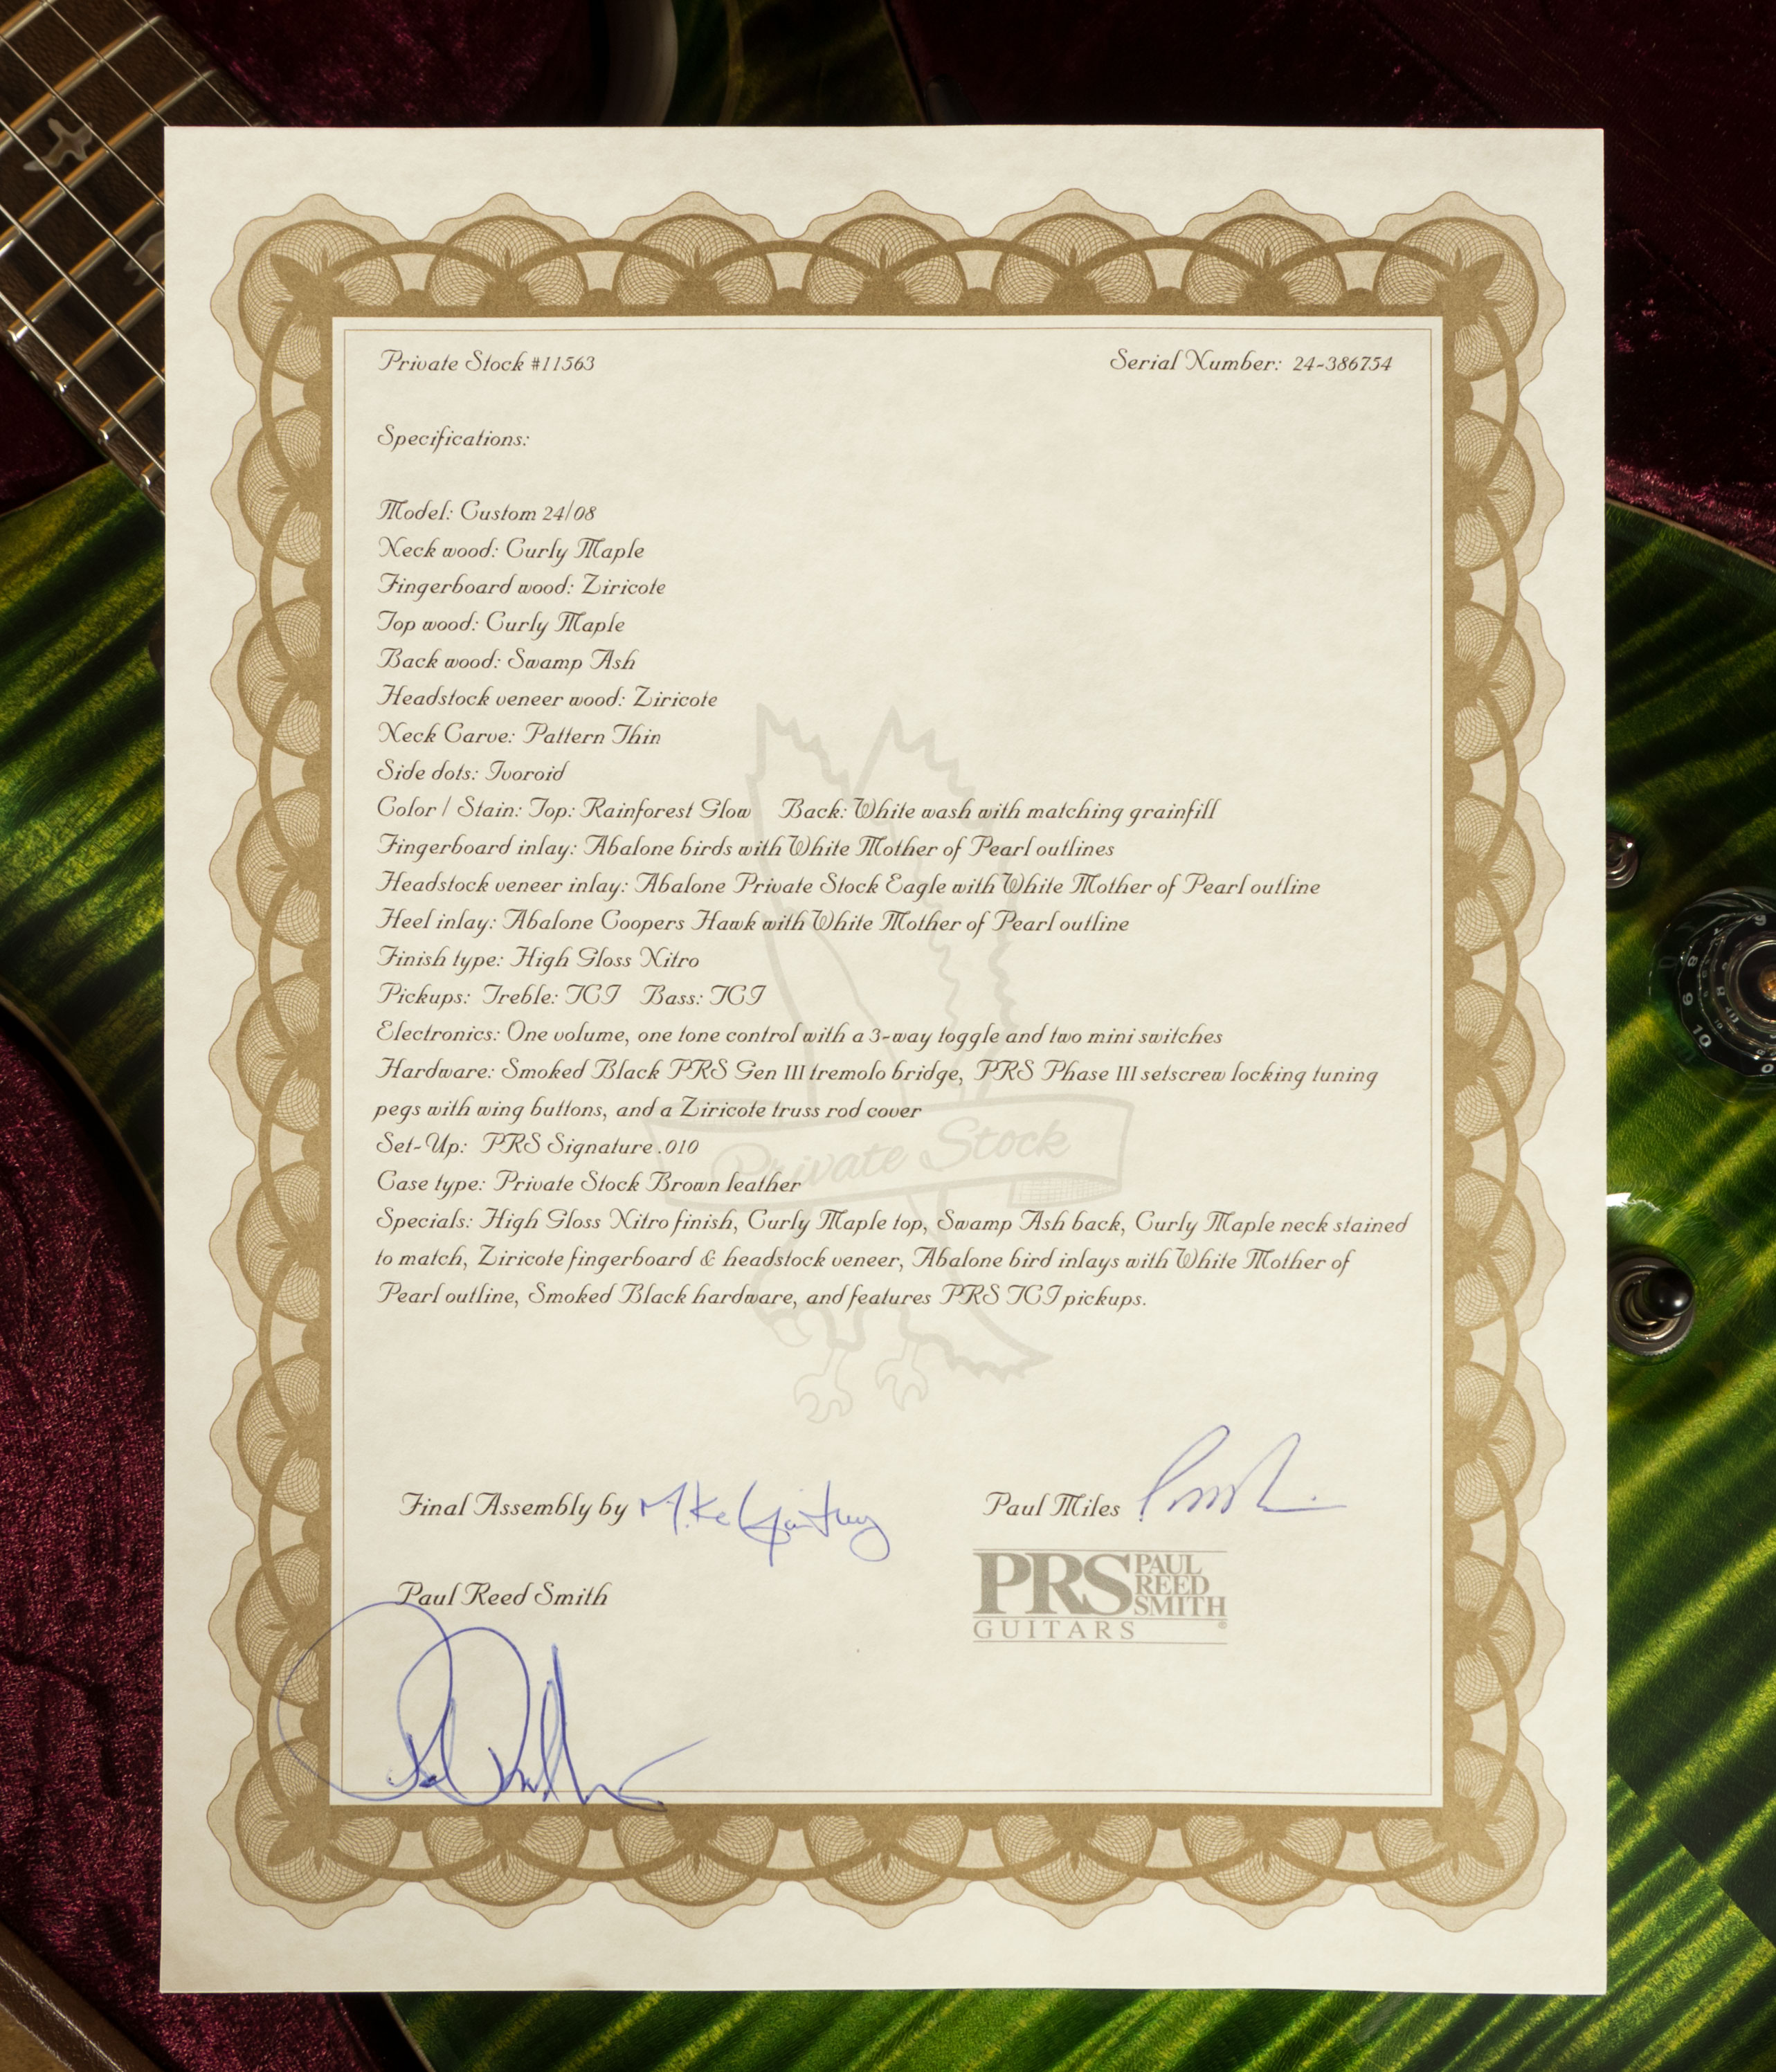 Private Stock #11563 Serial Number: 24-386754
Specifications:
Model: Custom 24/08
Neck wood: Curly Maple
Fingerboard wood: Ziricote
Top wood: Curly Maple
Back wood: Swamp Ash
Headstock veneer wood: Ziricote
Neck Carve: Pattern Thin
Side dots: Ivoroid
Color / Stain: Top: Rainforest Glow Back: White wash with matching grainfill
Fingerboard inlay: Abalone birds with White Mother of Pearl outlines
Headstock veneer inlay: Abalone Private Stock Eagle with White Mother of Pearl outline
Heel inlay: Abalone Coopers Hawk with White Mother of Pearl outline
Finish type: High Gloss Nitro
Pickups: Treble: TCI Bass: TCI
Electronics: One volume, one tone control with a 3-way toggle and two mini switches
Hardware: Smoked Black PRS Gen III tremolo bridge, PRS Phase III setscrew locking tuning
pegs with wing buttons, and a Ziricote truss rod cover
Private Stock
Set-Up: PRS Signature .010
Case type: Private Stock Brown leather
Specials: High Gloss Nitro finish, Curly Maple top, Swamp Ash back, Curly Maple neck stained
to match, Ziricote fingerboard & headstock veneer, Abalone bird inlays with White Mother of
Pearl outline, Smoked Black hardware, and features PRS TCI pickups.
Final Assembly by
Paul Miles
Paul Reed Smith
PRS PAUL
REED
SMITH
GUITARS